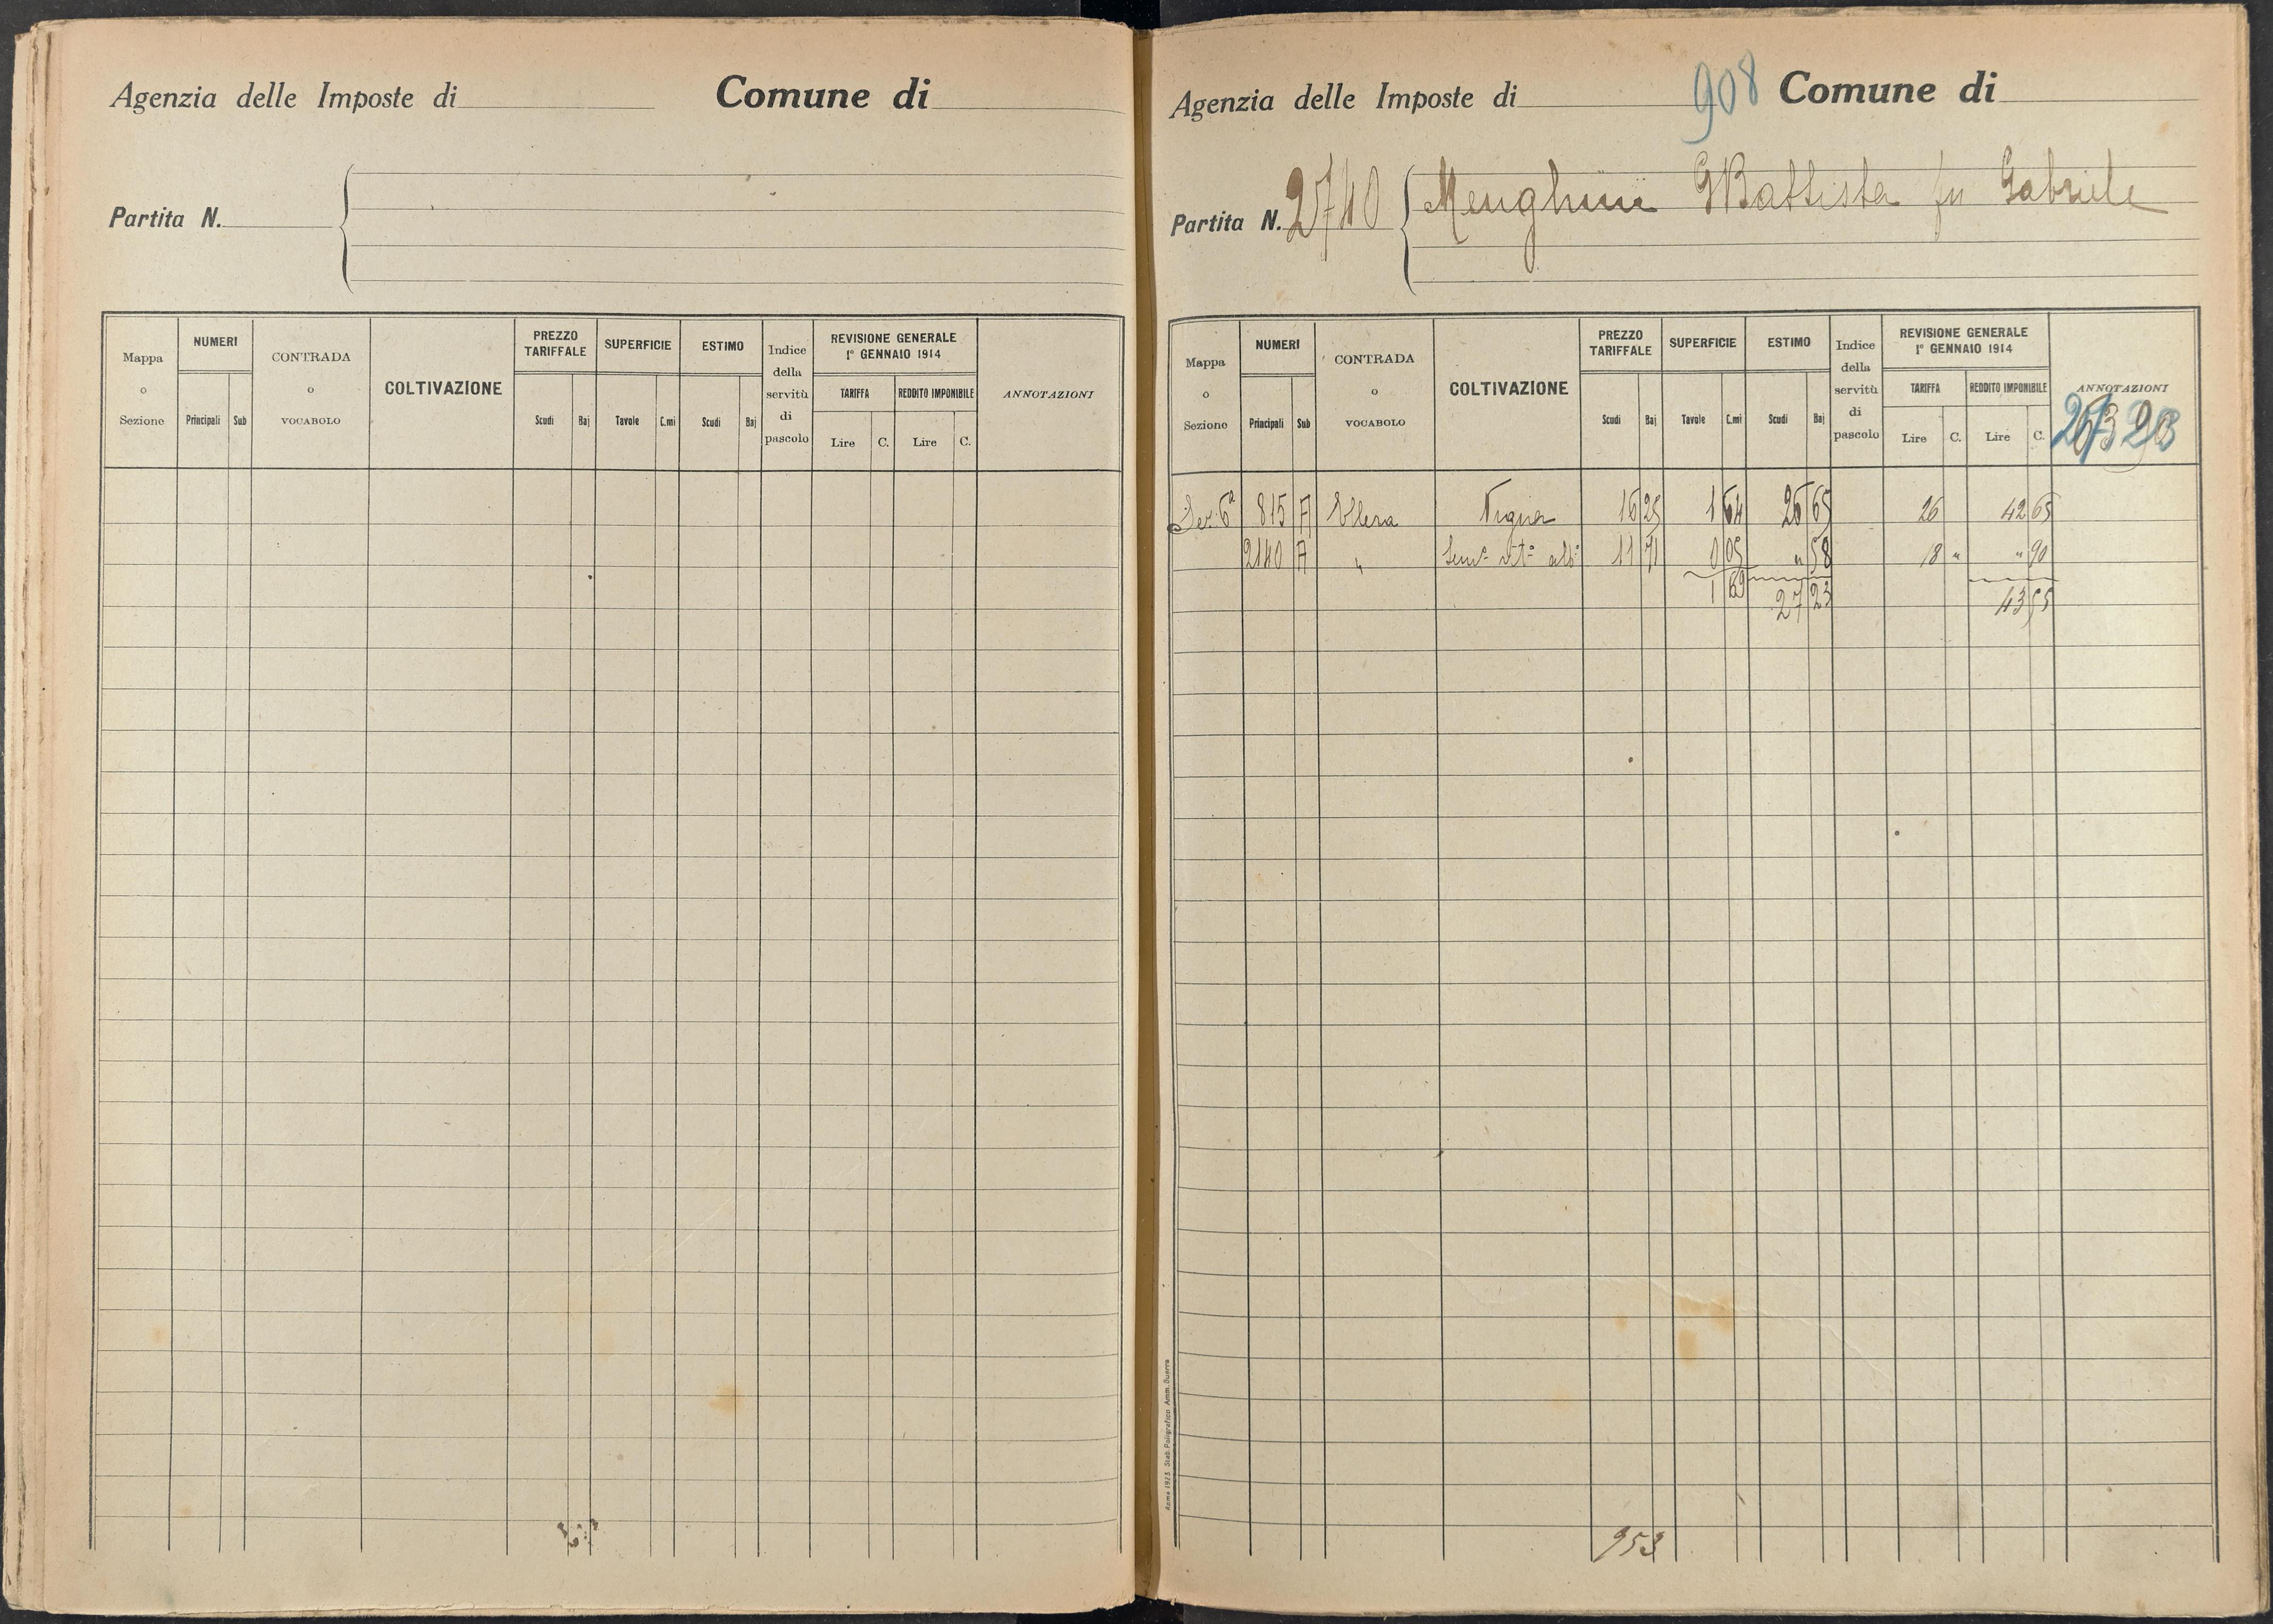 Agenzia delle Imposte di Comune di
Partita N.
Mappa o Sezione NUMERI Principali Sub CONTRADA o VOCABOLO COLTIVAZIONE PREZZO TARIFFALE Scudi Baj SUPERFICIE Tavole C.mi ESTIMO Scudi Baj Indice della servitù di pascolo REVISIONE GENERALE 1° GENNAIO 1914 TARIFFA Lire C. REDDITO IMPONIBILE Lire C. ANNOTAZIONI
Agenzia delle Imposte di 908 Comune di
Partita N. 2740 Menghini GBattista fu Gabriele
Mappa o Sezione NUMERI Principali Sub CONTRADA o VOCABOLO COLTIVAZIONE PREZZO TARIFFALE Scudi Baj SUPERFICIE Tavole C.mi ESTIMO Scudi Baj Indice della servitù di pascolo REVISIONE GENERALE 1° GENNAIO 1914 TARIFFA Lire C. REDDITO IMPONIBILE Lire C. ANNOTAZIONI
Sez. 6ª 815 A Ellera Vigna 16 25 1 64 26 65 26 42 65
2140 A " Sem° vit° alb° 11 71 0 05 " 58 18 " " 90
1 69 27 23 43 55
Roma 1923 Stab. Poligrafico Amm. Guerra
953